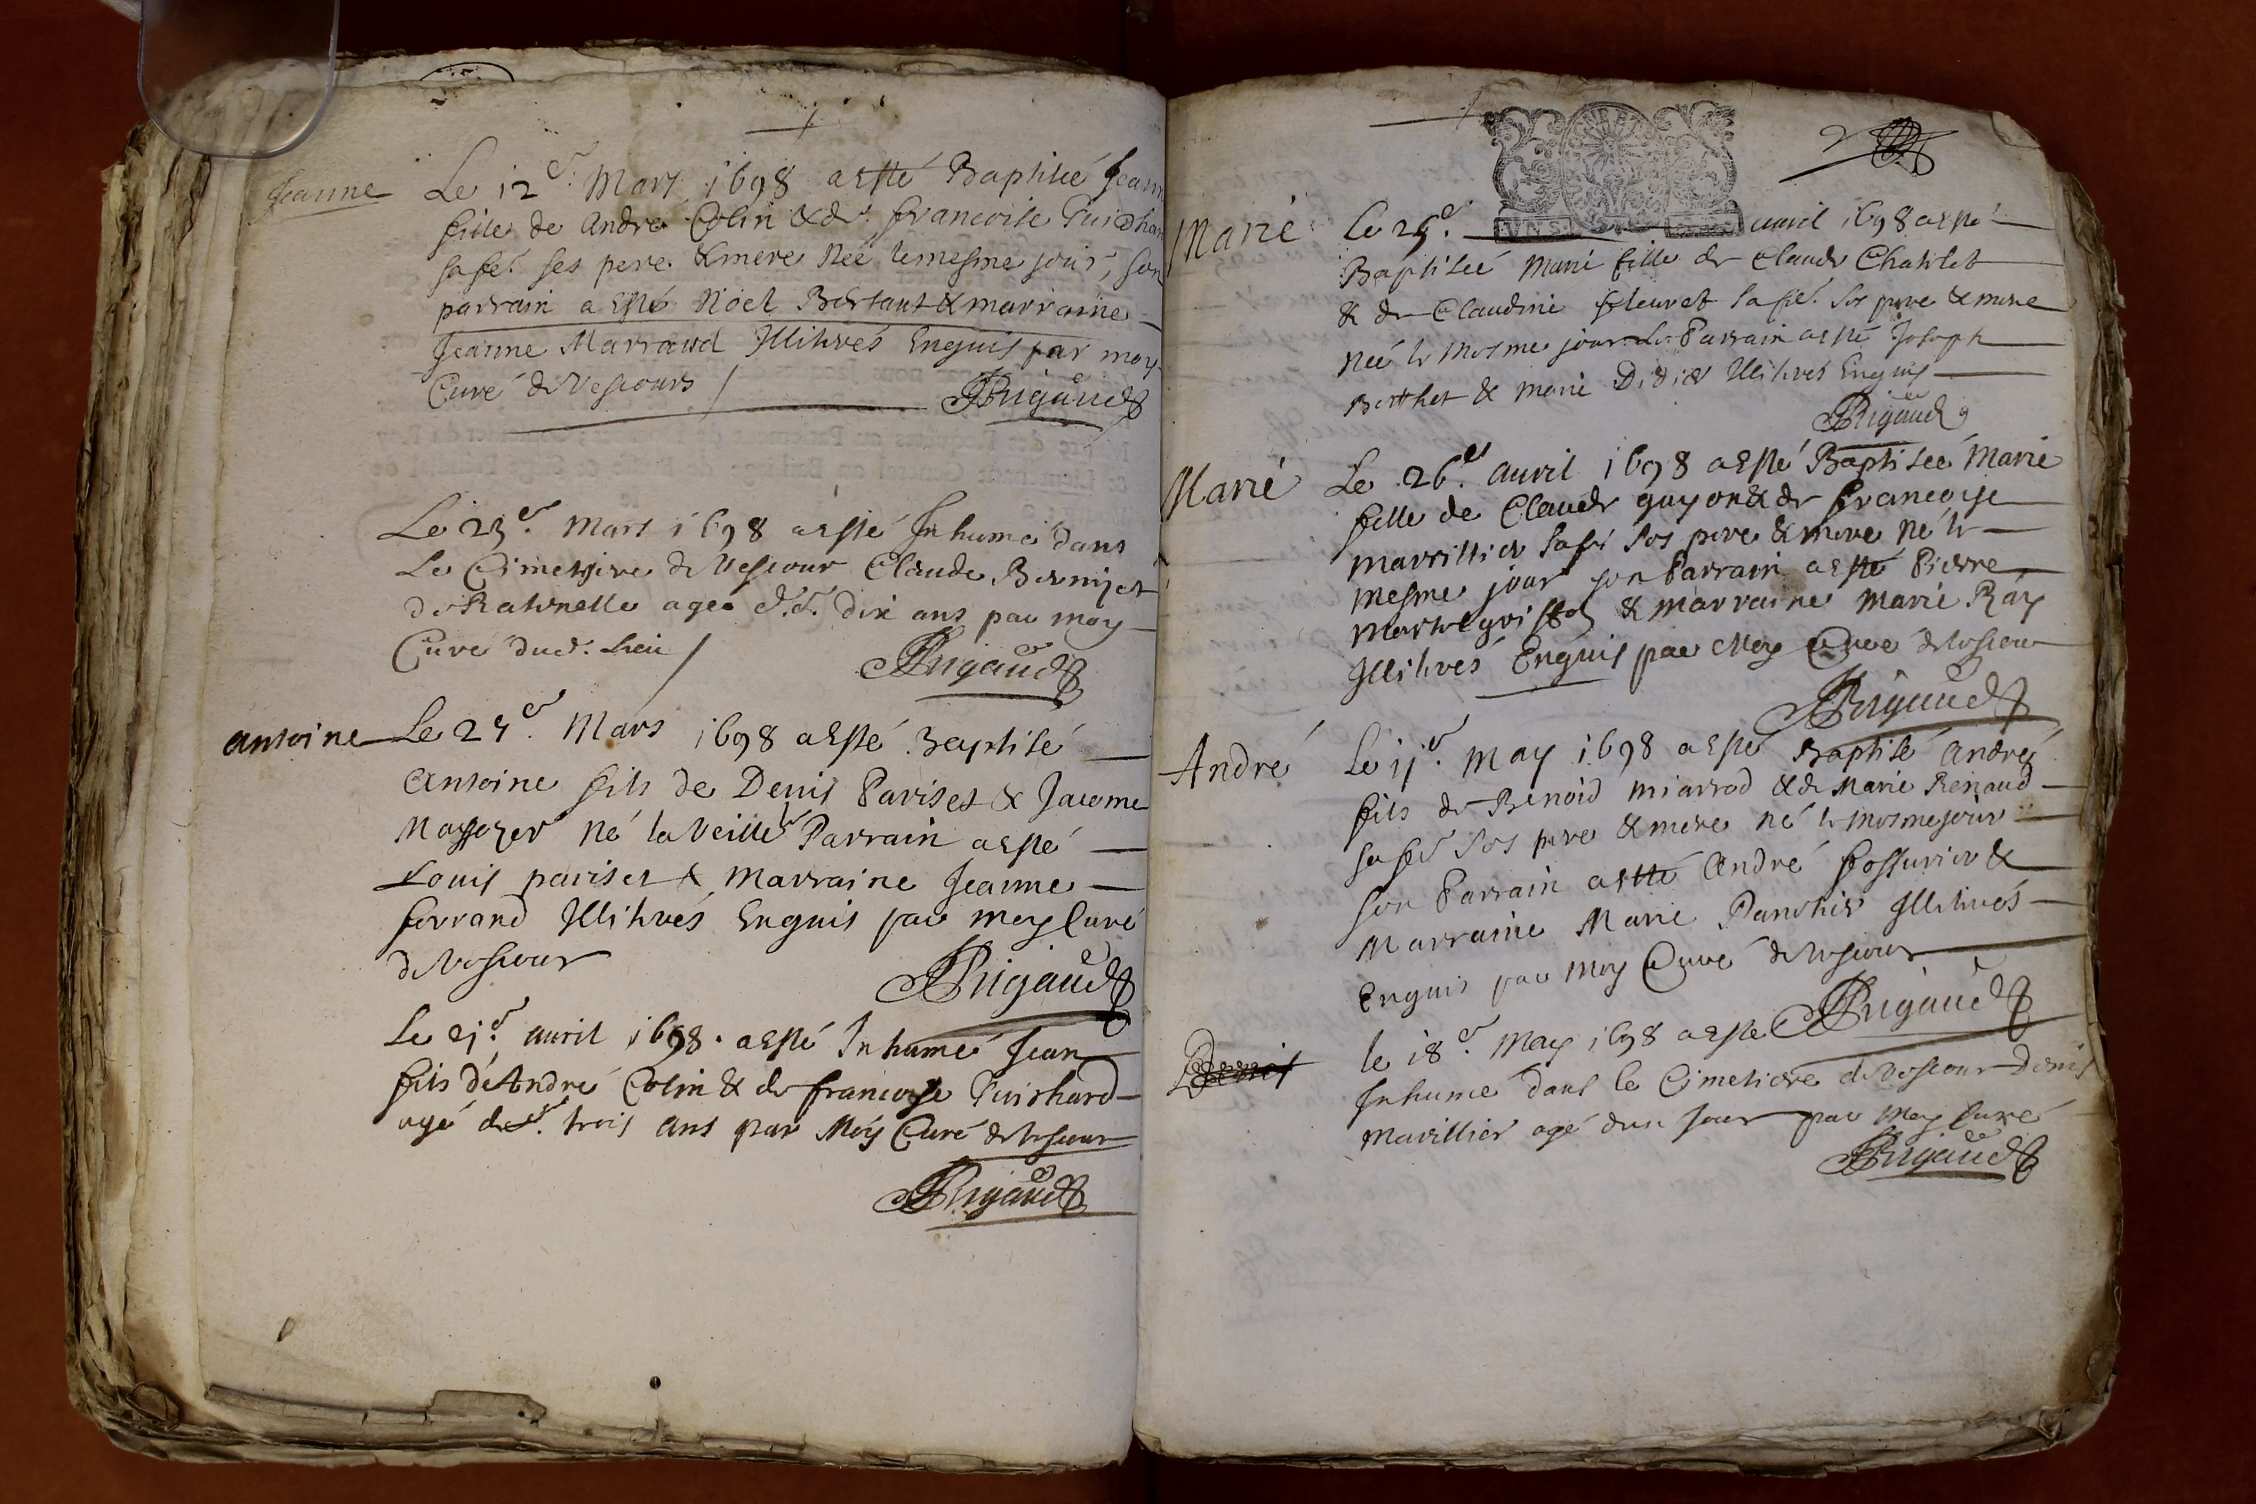 Jeanne
Le 12e. Mars 1698 a Esté Baptisée Jeann
fille de André Colin & de francoise Guichar
sa fe. ses pere & mere Née le mesme jour, son
parrain a Esté Noel Bertaut & marraine
Jeanne Marraud Illitrés Enquis par moy
Curé de Vescours /
JRigaud
Le 23e. Mars 1698 a Esté Inhumé dans
Le Cimetiere de Vescour Claude Bernizet
de Ratenelle agé d.d. dix ans par moy
Curé dud. Lieu /
JRigaud
antoine
Le 27e. Mars 1698 a Esté Baptisé
Antoine fils de De
nis Pariset & Jacome
né la veille Le Parrain a Esté
Louis pariset & Marraine Jeanne
ferrand Illitrés Enquis par moy Curé
de Vescour
JRigaud
Le 21e. avril 1698. a Esté Inhumé Jean
fils d'André Colin & de francoise Guichard
agé de trois ans par Moy Curé de Vescour
JRigaud
2
Marie
Le 25e. avril 1698 a Esté
Baptisée Marie fille de Claude Chatelet
& de Claudine fleuret sa fe. ses pere & mere
Née le Mesme jour Le Parrain a Esté Joseph
Berthet & marie Didier Illitrés Enquis
JRigaud
Marie
Le 26e. avril 1698 a Esté Baptisée Marie
fille de Claude guyon & de francoise
Marillier sa fe ses pere & mere Né le
mesme jour son Parrain a Esté Pierre
& marraine Marie Ray
Illitrés Enquis par Moy Curé de Vescour
JRigaud
André
Le 11e. May 1698 a Esté Baptisé André
fils de Benoid miarrod & de Marie Renaud
sa fe ses pere & mere né le mesme jour
son Parrain a Esté André fossurier &
Marraine Marie Panchis Illitrés
Enquis par Moy Curé de Vescour
JRigaud
le 18e. May 1698 a Esté
Inhumé dans le Cimetiere de Vescour Denis
Marillier agé dun Jour par Moy Curé
JRigaud